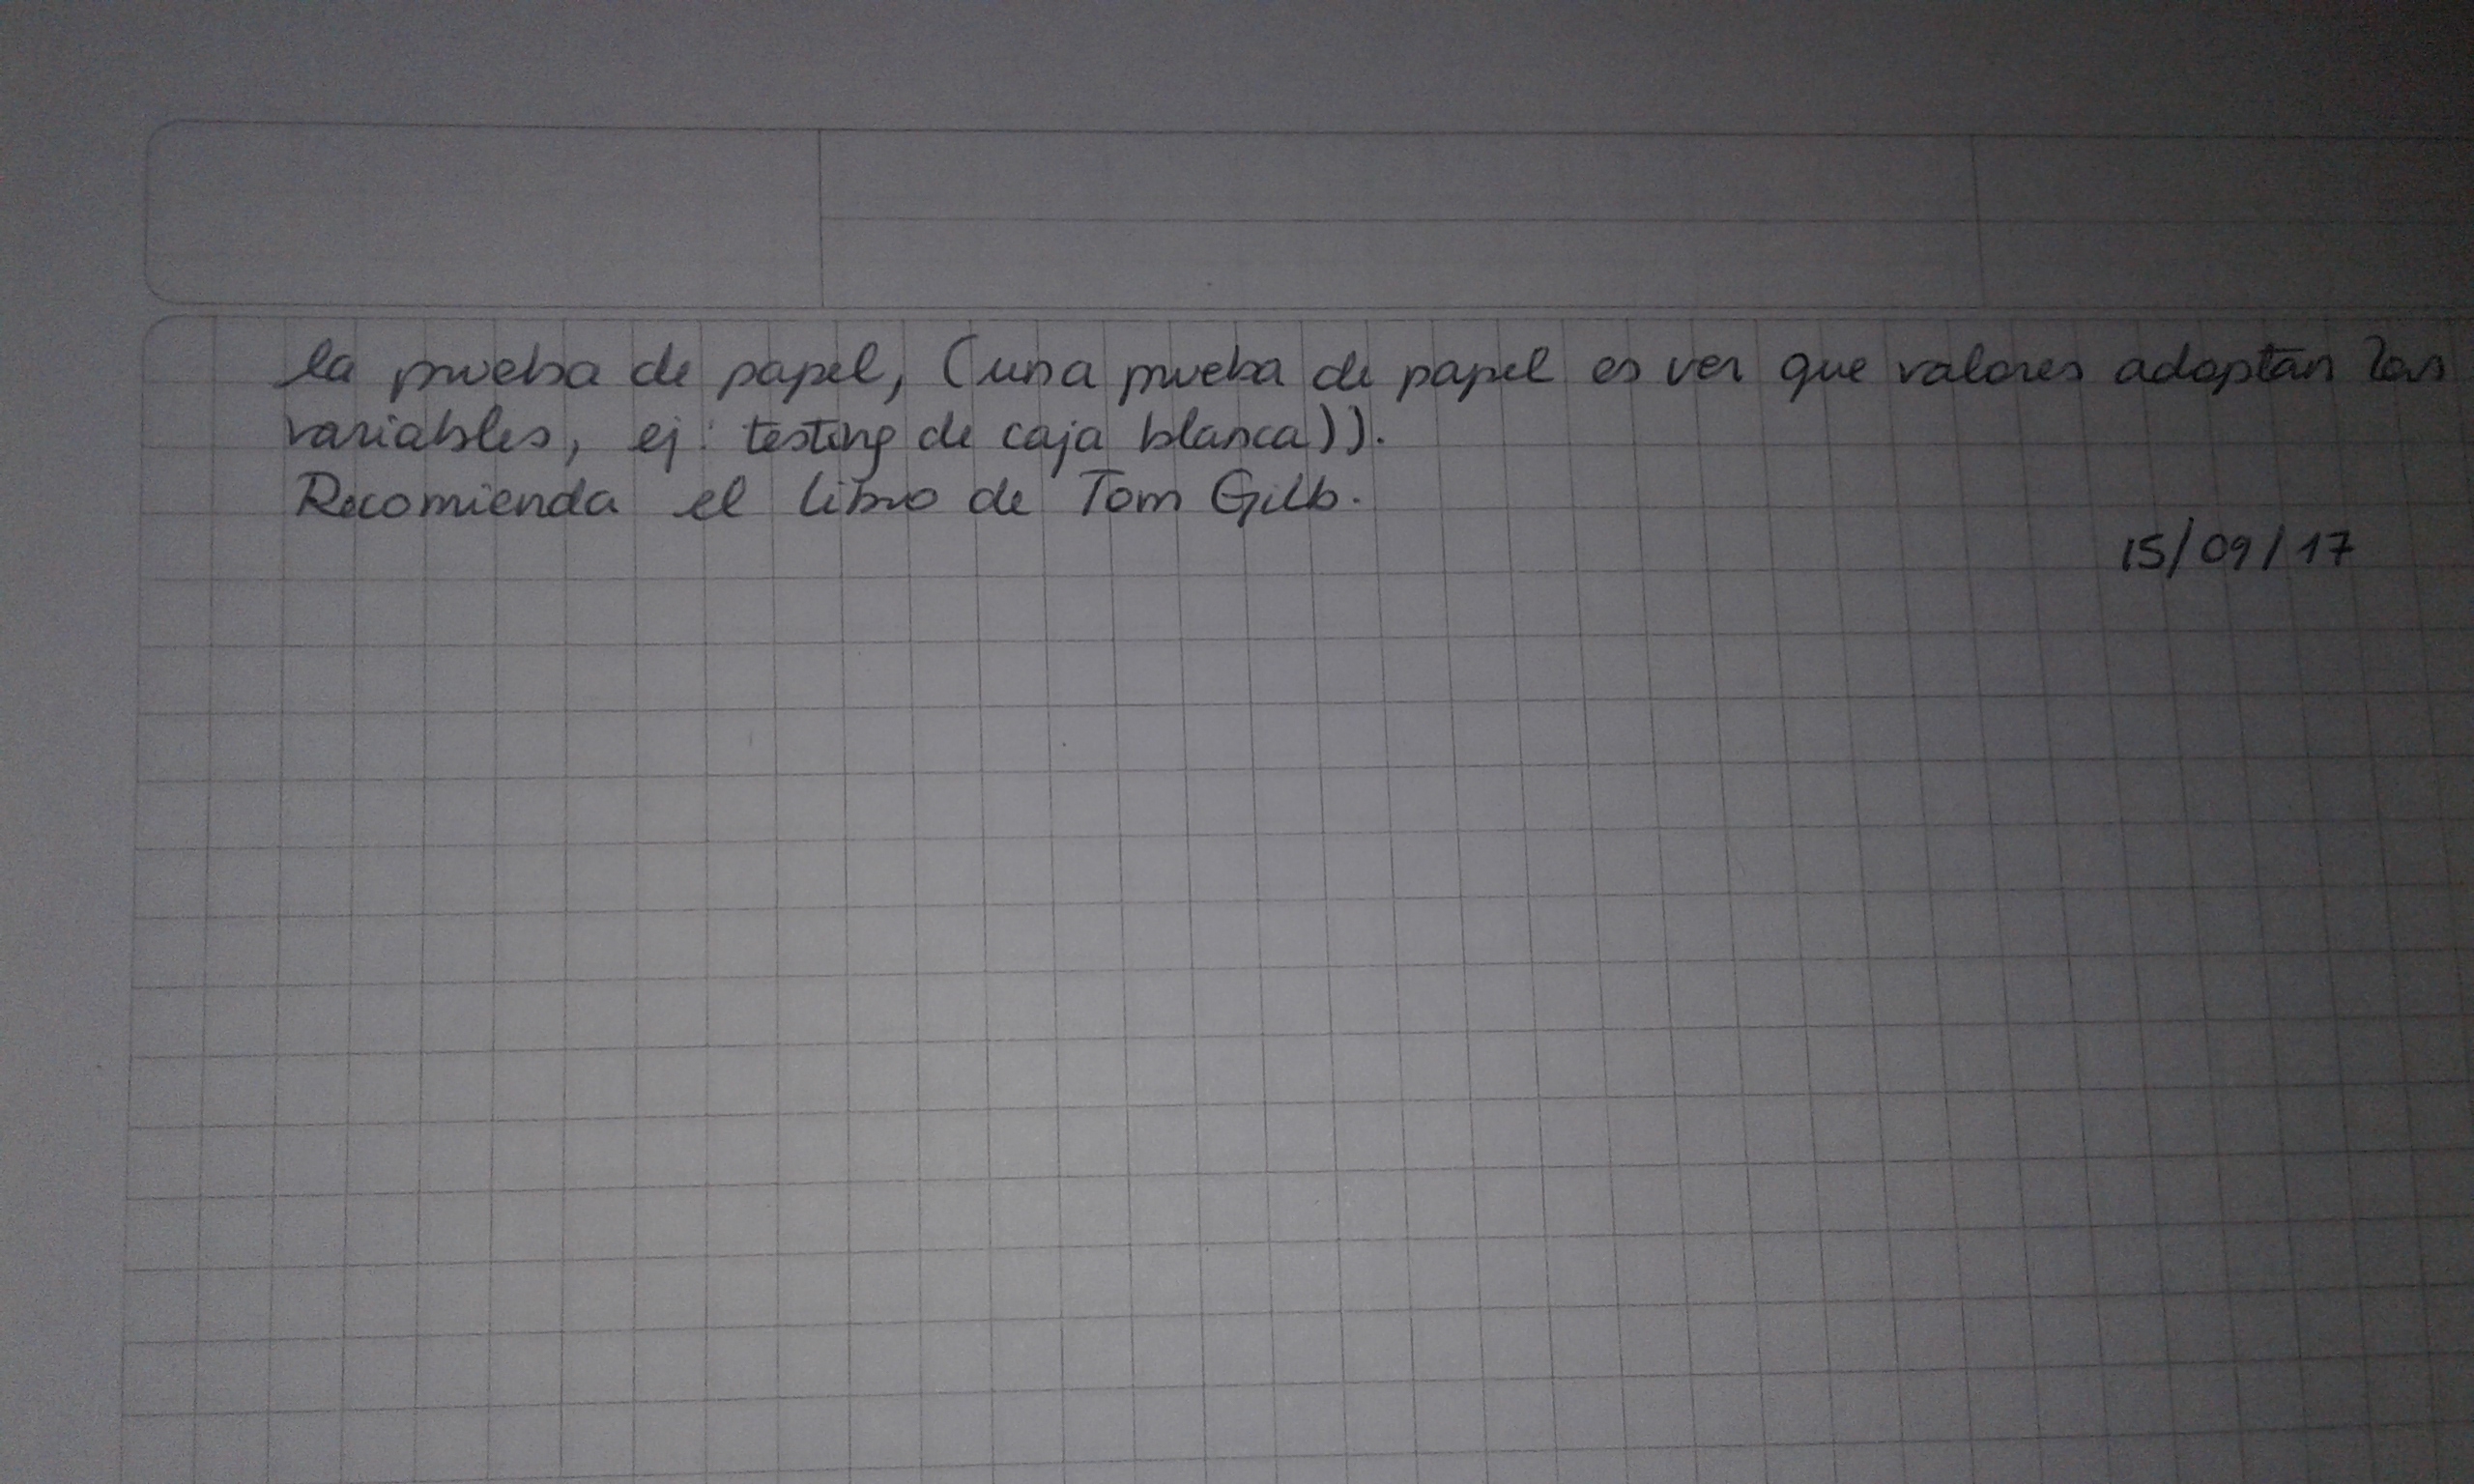 la prueba de papel, (una prueba de papel es ver que valores adoptan las
variables, ej: testing de caja blanca)).
Recomienda el libro de Tom Gilb.
15/09/17